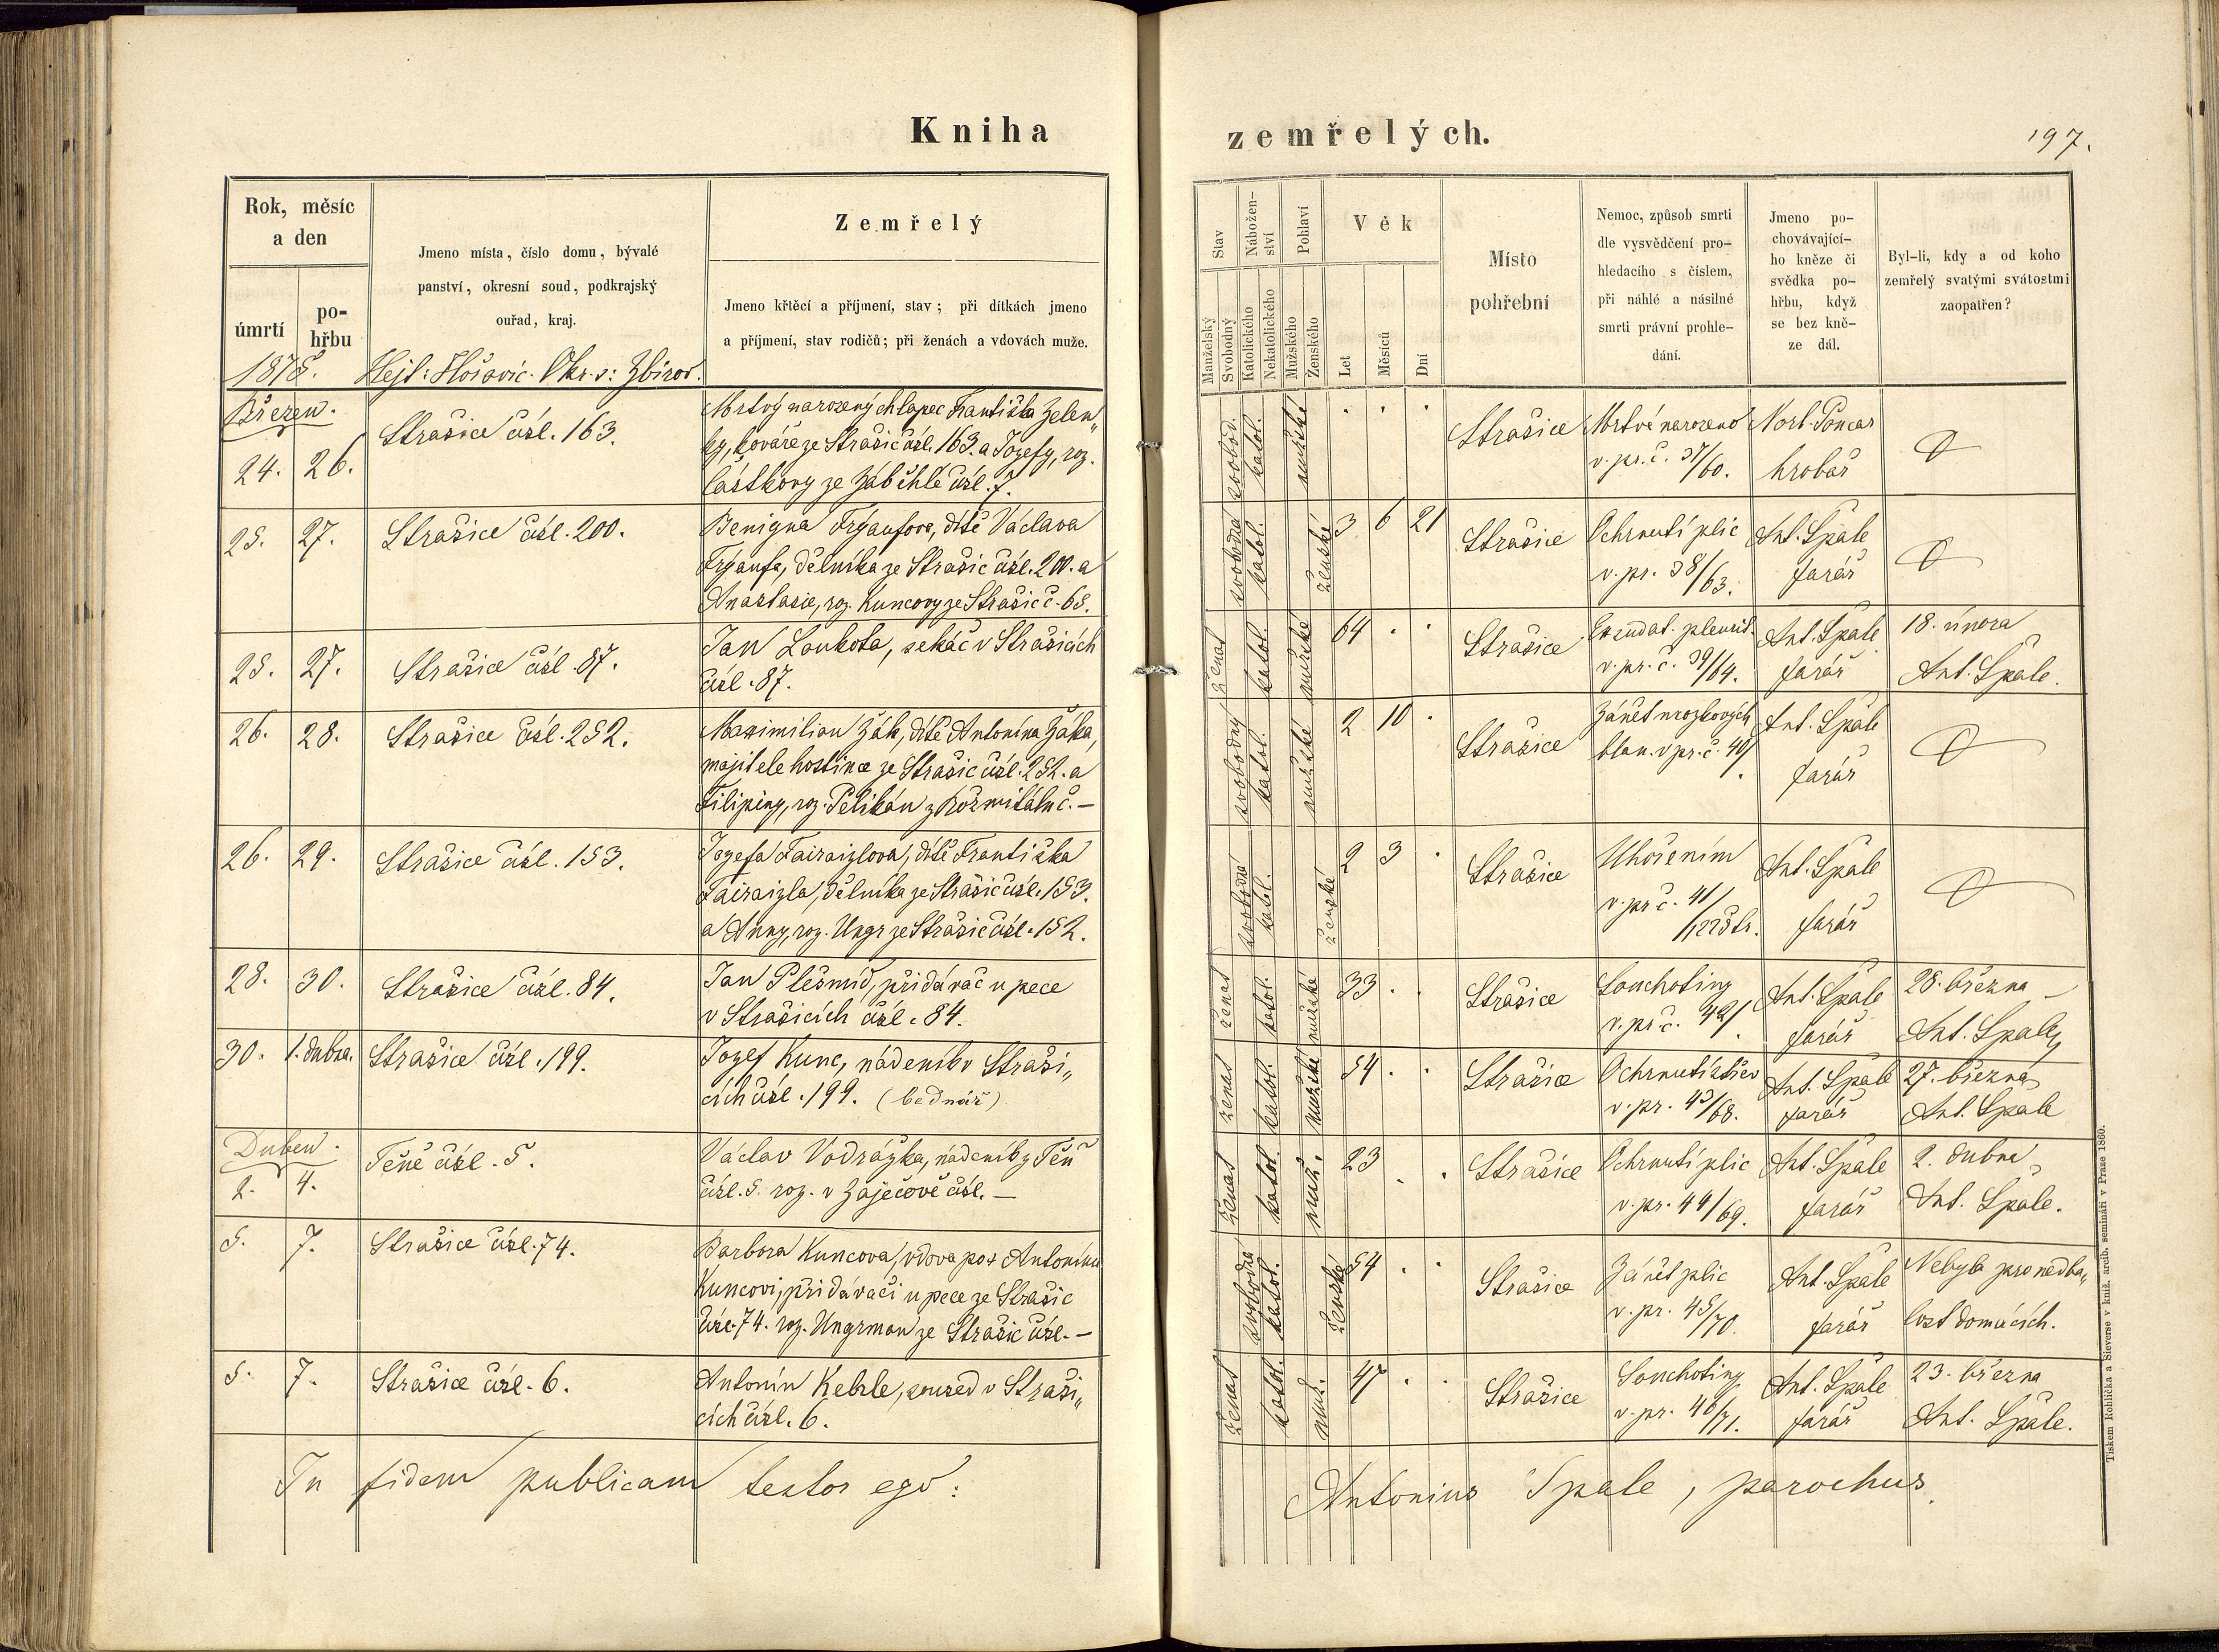 Kniha
zemřelých.
197.
Rok, měsíc
a den
úmrtí
po-
hřbu
Jmeno místa, číslo domu, bývalé
panství, okresní soud, podkrajský
ouřad, kraj.
Zemřelý
Jmeno křtěcí a příjmení, stav; při dítkách jmeno
a příjmení, stav rodičů; při ženách a vdovách muže.
Stav
Manželský
Svobodný
Nábožen-
ství
Katolického
Nekatolického
Pohlaví
Mužského
Ženského
Věk
Let
Měsíců
Dní
Místo
pohřební
Nemoc, způsob smrti
dle vysvědčení pro-
hledacího s číslem,
při náhlé a násilné
smrti právní prohle-
dání.
Jmeno po-
chovávající-
ho kněze či
svědka po-
hřbu, když
se bez kně-
ze dál.
Byl-li, kdy a od koho
zemřelý svatými svátostmi
zaopatřen?
1878. Hejt: Hořovic. Okr. s: Zbirov.
Březen.
24. 26. Strašice čísl. 163.
Mrtvý narozený chlapec Františka Zelen„
ky, kováře ze Strašic čísl. 163. a Jozefy, roz.
Částkovy ze Záběhlé čísl. 7.
svobod. katol. mužské . . . Strašice
Mrtvě narozeno
v. pr. č. 37/60.
Norb. Poncar
hrobař
25. 27. Strašice čísl. 200.
Benigna Frýaufova, dítě Václava
Frýaufa, dělníka ze Strašic čísl. 200. a
Anastasie, roz. Kuncovy ze Strašic č. 68.
svobodná katol. ženské 3 6 21 Strašice
Ochrnutí plic
v. pr. 38/63.
Ant. Špale
farář
25. 27. Strašice čísl. 87.
Jan Loukota, sekáč v Strašicích
čísl. 87.
ženat katol. mužské 64 . . Strašice
Exsudat. pleurit.
v. pr. č. 39/64.
Ant. Špale
farář
18. února
Ant. Špale.
26. 28. Strašice čísl. 252.
Maximilian Žák, dítě Antonína Žáka,
majitele hostince ze Strašic čísl. 252. a
Filipiny, roz. Pelikán z Rožmitálu č. —
svobodný katol. mužské 2 10 . Strašice
Zánět mozkových
blan. v pr. č. 40/.
Ant. Špale
farář
26. 29. Strašice čísl. 153.
Jozefa Fairaizlova, dítě Františka
Fairaizla, dělníka ze Strašic čísl. 153.
a Anny, roz. Ungr ze Strašic čísl. 152.
svobodná katol. ženské 2 3 . Strašice
Uhořením
v. pr č. 41/
Ant. Špale
farář
28. 30. Strašice čísl. 84.
Jan Plešmíd, přidávač u pece
v Strašicích čísl. 84.
ženat katol. mužské 33 . . Strašice
Souchotiny
v. pr č. 42/.
Ant. Špale
farář
28. března —
Ant. Špale
30. 1. dubna. Strašice čísl. 199.
Jozef Kunc, nádeník v Straši„
cích čísl. 199. (bednář)
ženat katol. mužské 54 . . Strašice
Ochrnutí střev
v. pr. 43/68.
Ant. Špale
farář
27. března
Ant. Špale
Duben.
2. 4. Těně čísl. 5.
Václav Vodrážka, nádeník z Těň
čísl. 5. roz. v Zaječově čísl. —
ženat katol. muž. 23 . . Strašice
Ochrnutí plic
v. pr. 44/69.
Ant. Špale
farář
2. dubna
Ant. Špale.
5. 7. Strašice čísl. 74.
Barbora Kuncova, vdova po + Antonínu
Kuncovi, přidávači u pece ze Strašic
čísl. 74. roz. Ungrman ze Strašic čísl. —
svobodná katol. ženské 54 . . Strašice
Zánět plic
v. pr. 45/70.
Ant. Špale
farář
Nebyla pro nedba„
lost domácích.
5. 7. Strašice čísl. 6.
Antonín Kebrle, soused v Straši„
cích čísl. 6.
ženat katol. muž. 47 . . Strašice
Souchotiny
v. pr. 46/71.
Ant. Špale
farář
23. března
Ant. Špale.
In fidem publicam testor ego:
Antonius Spale, parochus.
Tiskem Rohlíčka a Sieverse v kníž. arcib. semináři v Praze 1860.